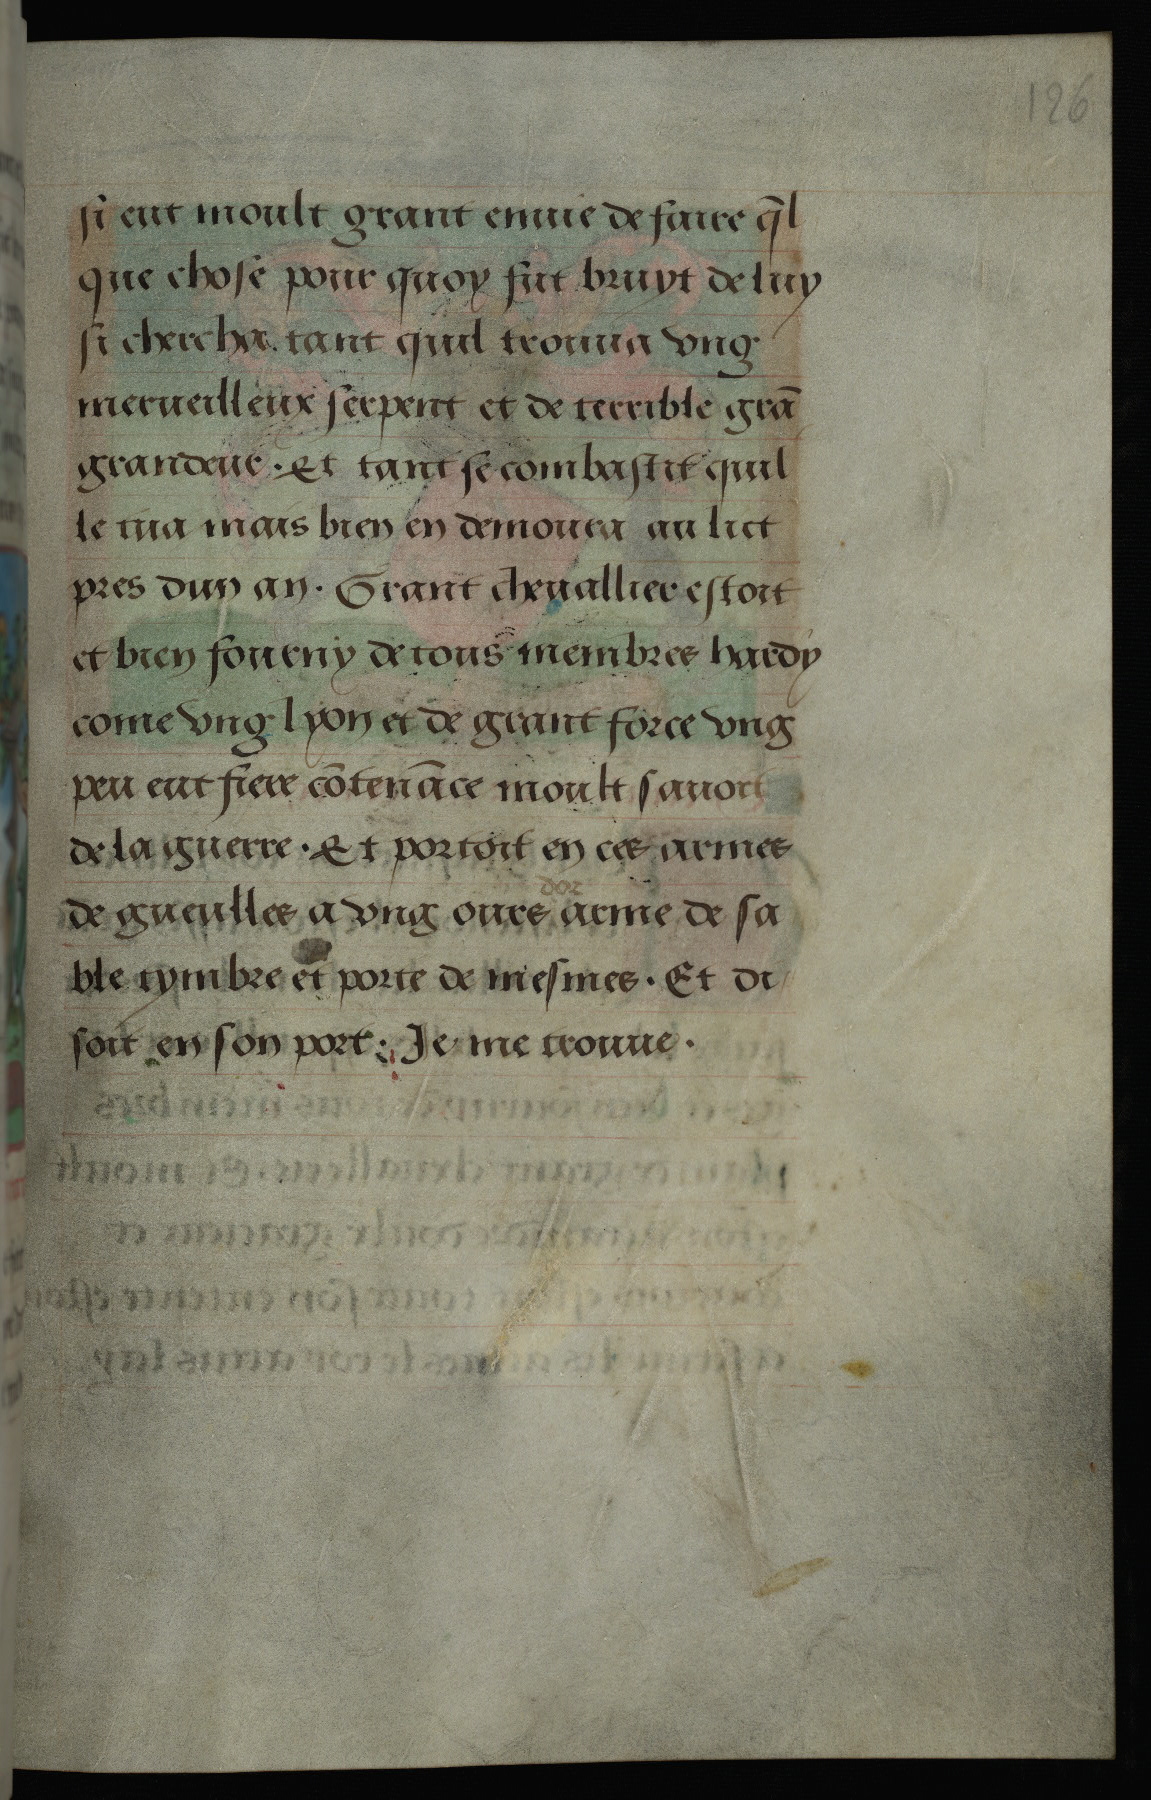 126
si eut moult grant enuie de faire q̄l
que chose pour quoy fut bruyt de luy
si chercha tant quil trouua vng
merueilleux serpent et de terrible grā
grandeur. Et tant se combastit quil
le tua mais bien en demoura au lict
pres dun an. Grant cheuallier estoit
et bien fourny de tous membres hardy
come vng lyon et de grant force vng
peu eut fiere cōtenāce moult sauoit
de la guerre. Et portoit en ces armes
dor
de gueulles a vng ours arme de sa
ble tymbre et porte de mesmes. Et di
soit en son port. Je me trouue.